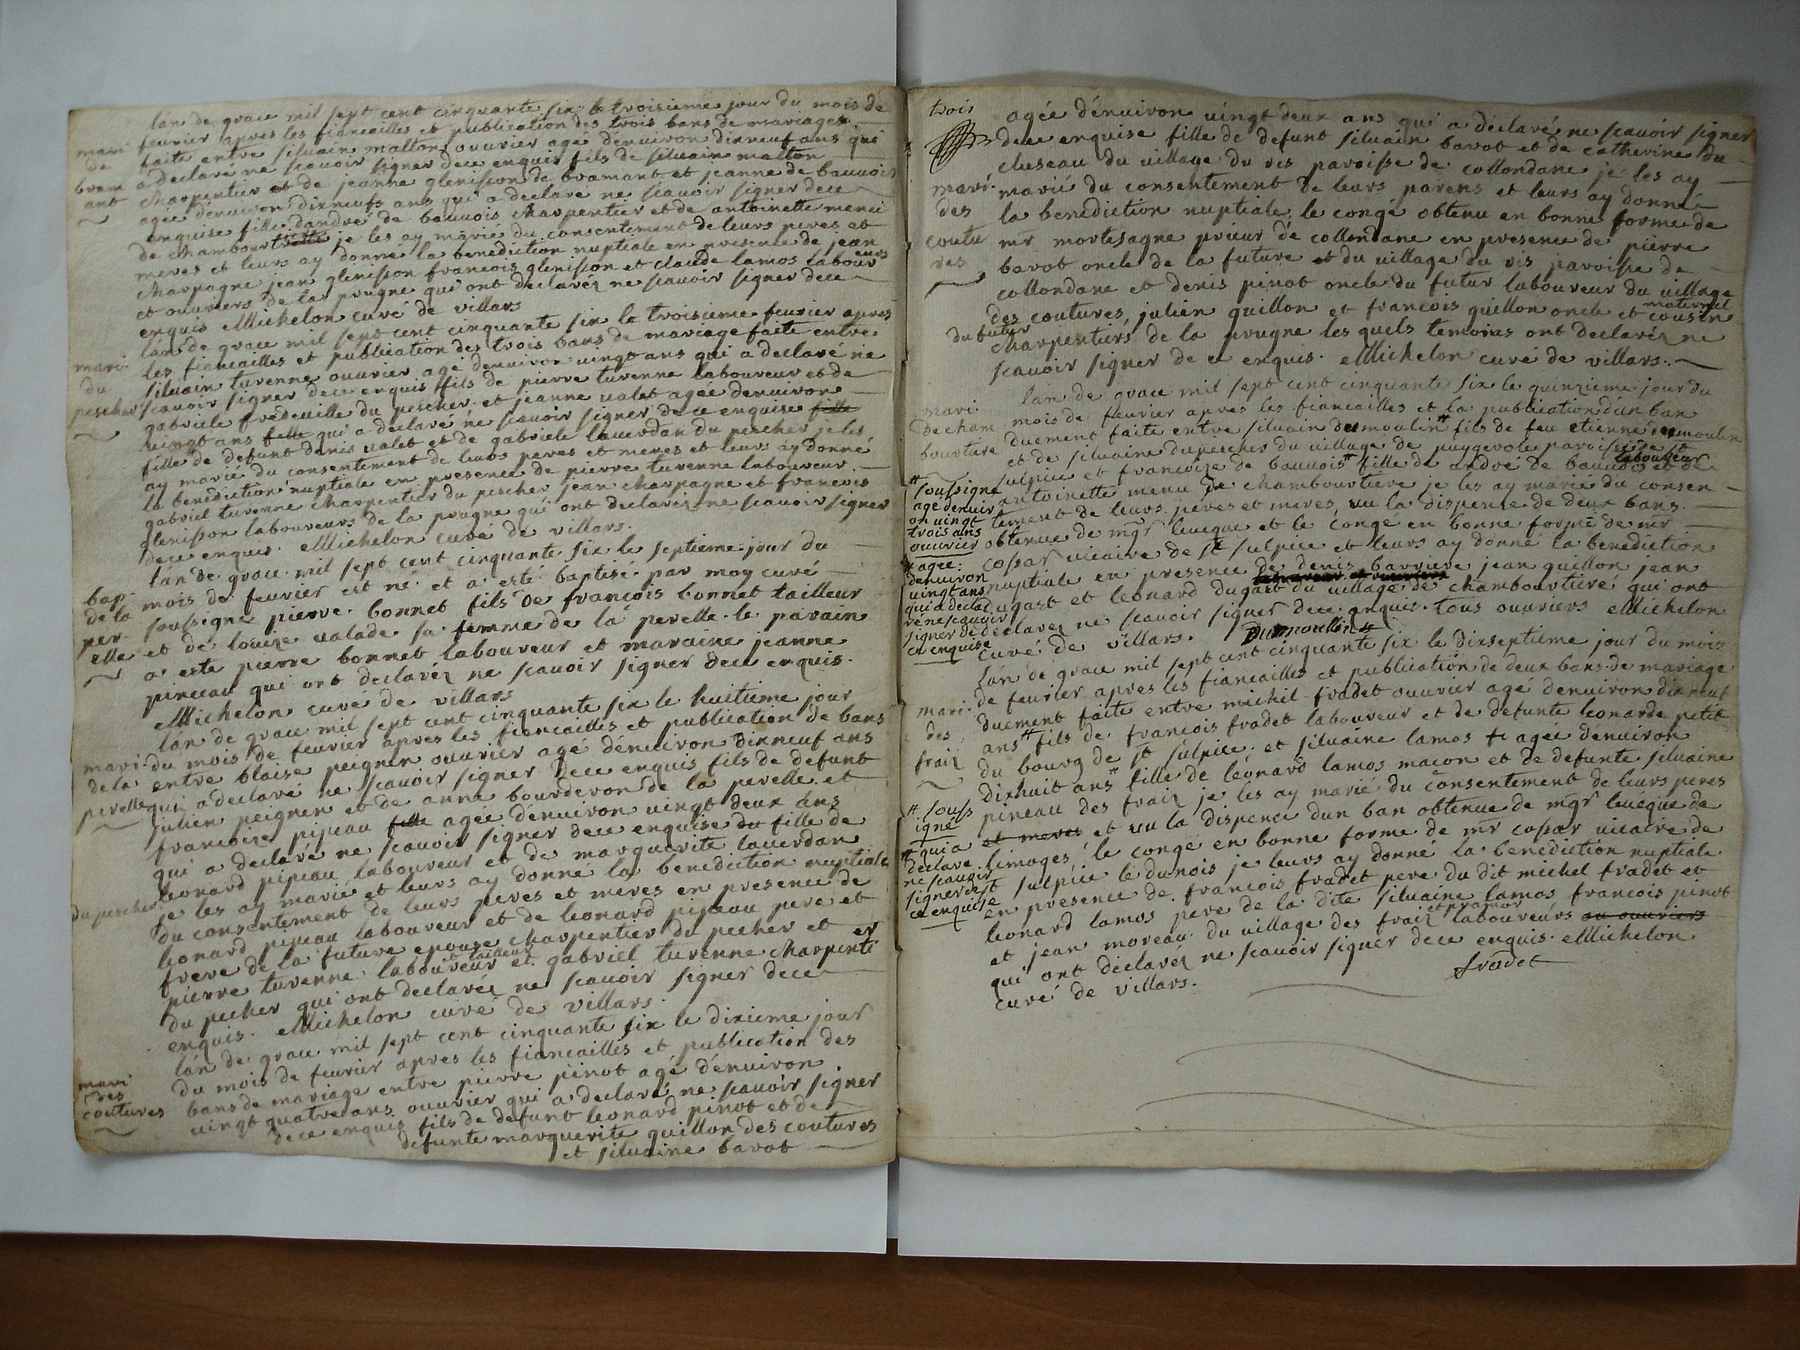 lan de grace mil sept cent cinquante six le troisieme jour du mois de
fevrier apres les fiancailles et publication des trois bans de mariages
mari faite entre siluain malton ouvrier agé dénuiron dixneuf ans qui
de a declaré ne scauoir signer dece enquis fils de siluain malton
bram charpentier et de jeanne glenisson de bramant et jeanne de bauuois
ant agée denuiron dixneufs ans qui a declaré ne scauoir signer dece
enquise fille dandré de bauuois charpentier et de antoinette menu
de chambourt je les ay marié du consentement de leurs peres et
meres et leurs ay donné la benediction nuptiale en presence de jean
charpagne jean glenisson francois glenisson et claude lamos labour eurs
et ouuriers de la prugne qui ont declarez ne scauoir signer dece
enquis Michelon curé de villars
lan de grace mil sept cent cinquante six le troisieme feurier apres
les fiancailles et publication des trois bans de mariage faite entre
mari siluain turenne ouurier agé denuiron uingt ans qui a declaré ne
du scauoir signer dece enquis fils de pierre turenne laboureur et de
pescher gabriele fredeuille du pescher et jeanne ualet agée denuiron
uingt ans fille qui a declaré ne scauoir signer dece enquise fille
fille de defunt denis ualet et de gabriele lauerdan du pescher je les
ay marié du consentement de leurs peres et meres et leurs ay donné
la benediction nuptiale en presence de pierre turenne laboureur
gabriel turenne charpentier du pescher jean charpagne et francois
glenisson laboureurs de la prugne qui ont declarez ne scauoir signer
dece enquis Michelon curé de villars.
lan de grace mil sept cent cinquante six le septieme jour du
bap mois de feurier est né et a esté baptisé par moy curé
de la soussigné pierre bonnet fils de francois bonnet tailleur
per et de louise ualade sa femme de la perelle le parain
elle a esté pierre bonnet laboureur et maraine jeanne
pineau qui ont declarez ne scauoir signer dece enquis.
Michelon curé de villars
lan de grace mil sept cent cinquante six le huitieme jour
mari du mois de feurier apres les fiancailles et publication de bans
de la entre blaise peignin ouurier agé dénuiron dixneuf ans
perelle qui a declaré ne scauoir signer dece enquis fils de defunt
julien peignin et de anne bourderon de la perelle et
francoise pipeau fille agée denuiron uingt deux ans
qui a declaré ne scauoir signer dece enquise du fille de
leonard pipeau laboureur et de marguerite lauerdan
du pescher je les ay marié et leurs ay donné la benediction nuptiale
du consentement de leurs peres et meres en presence de
leonard pipeau laboureur et de leonard pipeau pere et
frere de la future epouse charpentier du pecher et
pierre turenne laboureur et gabriel turenne charpenti er
du pecher qui ont declarez ne scauoir signer dece
enquis. Michelon curé de villars.
lan de grace mil sept cent cinquante six le dixieme jour
mari du mois de feurier apres les fiancailles et publication des
des bans de mariage entre pierre pinot agé dénuiron
coutures uingt quatre ans ouurier qui a declaré ne scauoir signer
dece enquis fils de defunt leonard pinot et de
defunte marguerite guillon des coutures
et siluaine barot
trois agée dénuiron uingt deux ans qui a déclaré ne scauoir signer
dece enquise fille de defunt siluain barot et de catherine du
cluseau du village du ris paroisse de collondane je les ay
mari marié du consentement de leurs parens et leurs ay donné
des la benediction nuptiale le congé obtenu en bonne forme de
coutu mr mortesagne prieur de collondane en presence de pierre
res barot oncle de la future et du village du ris paroisse de
collondane et denis pinot oncle du futur laboureur du village
des coutures, julien guillon et francois guillon oncle et cousin maternel
du futur charpentiers de la prugne les quels temoins ont declarez ne
scauoir signer de ce enquis. Michelon curé de villars.
lan de grace mil sept cent cinquante six le quinzieme jour du
mari mois de feurier apres les fiancailles et la publication dun ban
de cham duement faite entre siluain desmoulin # fils de feu etienne desmoulin
bourtiere et de siluaine duperches du village de puygerole paroisse de st
sulpice et francoise de bauuois # fille de andré de bauuois laboureur et de
# soussigné antoinette menu de chambourtiere je les ay marié du consen
agé denuir tement de leurs peres et meres, uu la dispense de deux bans
on uingt obtenue de mgr leueque et le congé en bonne forme de mr
trois ans cossar uicaire de st sulpice et leurs ay donné la benediction
ouurier nuptiale en presence de denis barriere jean guillon jean
# agée dugast et leonard dugast du village de chambourtiere qui ont
denuiron declarez ne scauoir signer dece enquis. tous ouuriers Michelon
uingt ans curé de villars. Dumoullin
qui a declar
ré ne scauoir
signer de
ce enquise
lan de grace mil sept cent cinquante six le dixseptieme jour du mois
de feurier apres les fiancailles et publication de deux bans de mariage
mari duement faite entre michel fradet ouurier agé denuiron dixneuf
des ans # fils de francois fradet laboureur et de defunte leonarde petit
fraiz du bourg de st sulpice et siluaine lamos # agée denuiron
dixhuit ans fille de léonard lamos macon et de defunte siluaine
pineau des fraiz je les ay marié du consentement de leurs peres
# souss et meres et uu la dispence dun ban obtenue de mgr leueque de
igné limoges, le congé en bonne forme de mr cossar uicaire de
# qui a st sulpice le dunois je leurs ay donné la benediction nuptiale
declaré en presence de francois fradet pere du dit michel fradet et
ne scauoir leonard lamos pere de la dite siluaine lamos francois pinot
signer de et jean moreau du village des fraiz laboureurs ou ouuriers
ce enquise qui ont declarez ne scauoir signer dece enquis. Michelon
curé de villars. fradet